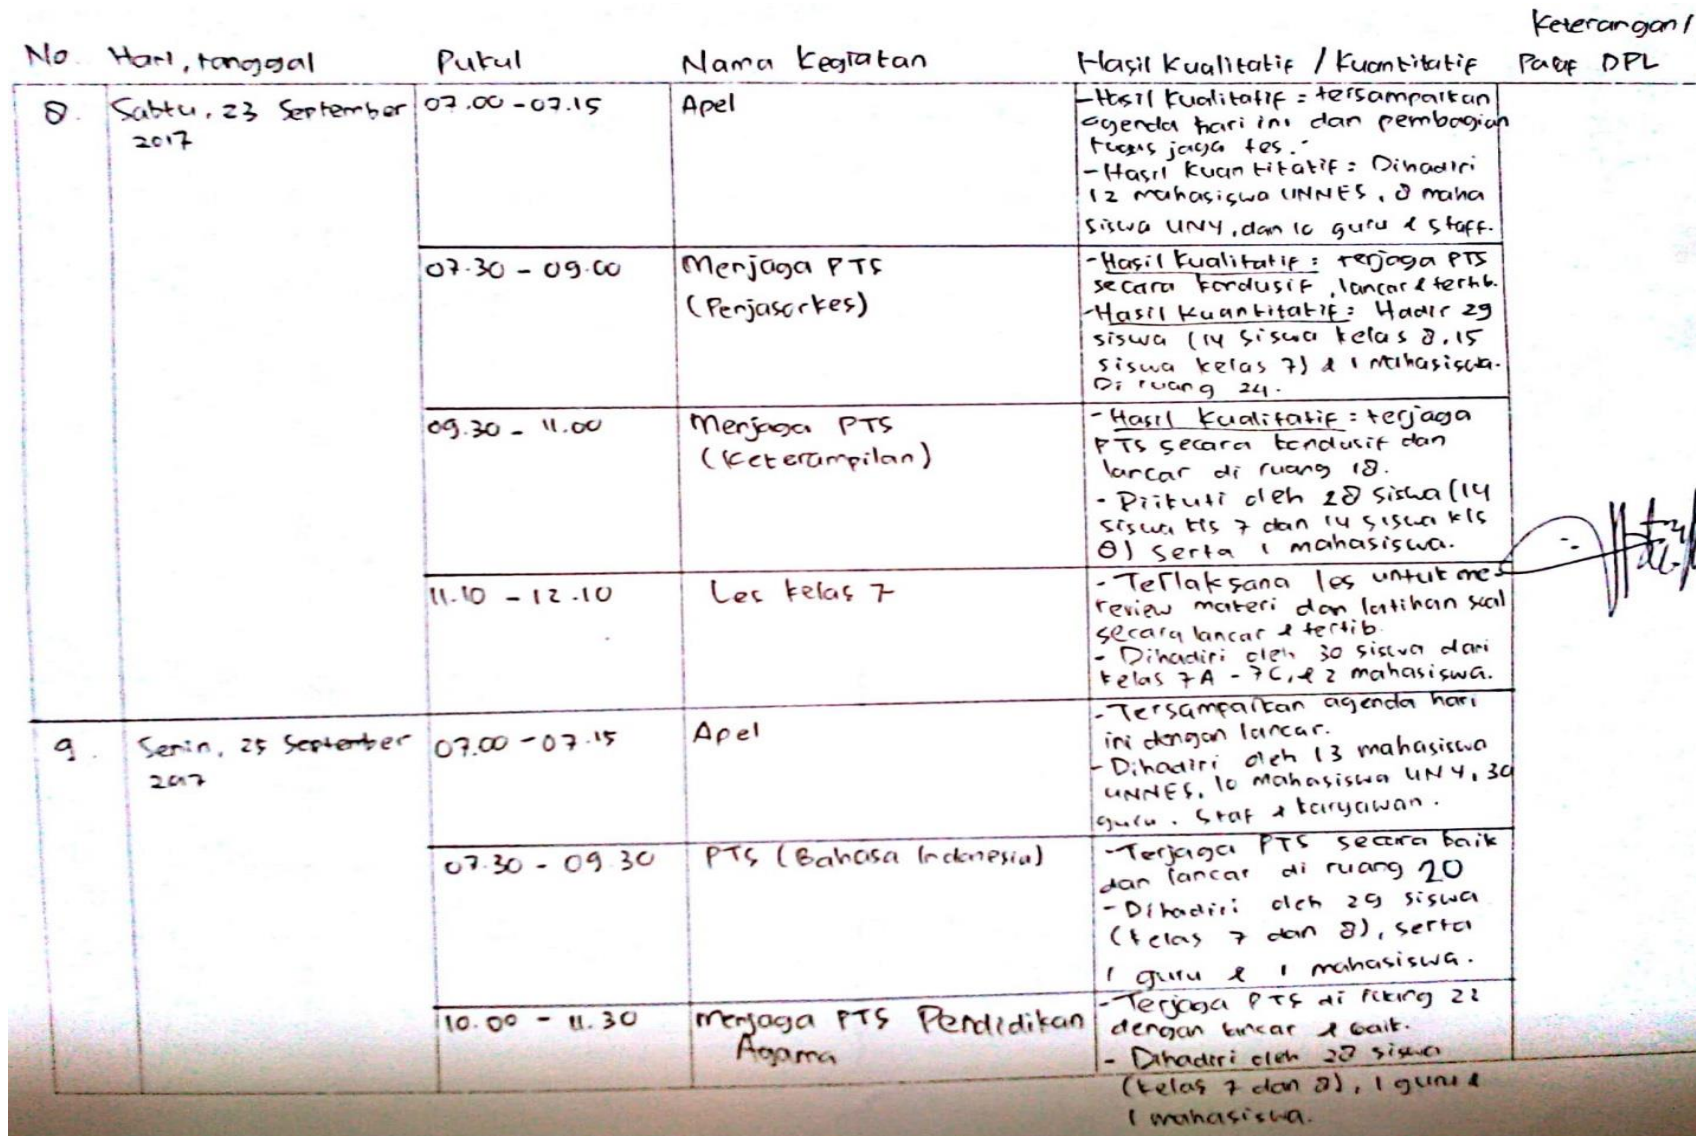 Keterangan /
No. Hari, tanggal Pukul Nama Kegiatan Hasil Kualitatif / Kuantitatif Paraf DPL
8. Sabtu, 23 September 2017
07.00 - 07.15
Apel
- Hasil Kualitatif : tersampaikan
agenda hari ini dan pembagian
tugas jaga tes.
- Hasil Kuantitatif : Dihadiri
12 mahasiswa UNNES, 8 maha
siswa UNY, dan 10 guru & staff.
07.30 - 09.00
Menjaga PTS
(Penjasorkes)
- Hasil Kualitatif : terjaga PTS
secara kondusif, lancar & tertib.
- Hasil Kuantitatif : Hadir 29
siswa (14 siswa kelas 8, 15
siswa kelas 7) & 1 mahasiswa.
Di ruang 24.
09.30 - 11.00
Menjaga PTS
(Keterampilan)
- Hasil Kualitatif : terjaga
PTS secara kondusif dan
lancar di ruang 18.
- Diikuti oleh 28 siswa (14
siswa kls 7 dan 14 siswa kls
8) serta 1 mahasiswa.
11.10 - 12.10
Les kelas 7
- Terlaksana les untuk me-
review materi dan latihan soal
secara lancar & tertib.
- Dihadiri oleh 30 siswa dari
kelas 7A - 7C, & 2 mahasiswa.
9. Senin, 25 September
2017
07.00 - 07.15
Apel
- Tersampaikan agenda hari
ini dengan lancar.
- Dihadiri oleh 13 mahasiswa
UNNES, 10 mahasiswa UNY, 30
guru, staf & karyawan.
07.30 - 09.30
PTS (Bahasa Indonesia)
- Terjaga PTS secara baik
dan lancar di ruang 20
- Dihadiri oleh 29 siswa
(kelas 7 dan 8), serta
1 guru & 1 mahasiswa.
10.00 - 11.30
Menjaga PTS Pendidikan
Agama
- Terjaga PTS di 22
dengan lancar & baik.
- Dihadiri oleh 28 siswa
(kelas 7 dan 8), 1 guru &
1 mahasiswa.